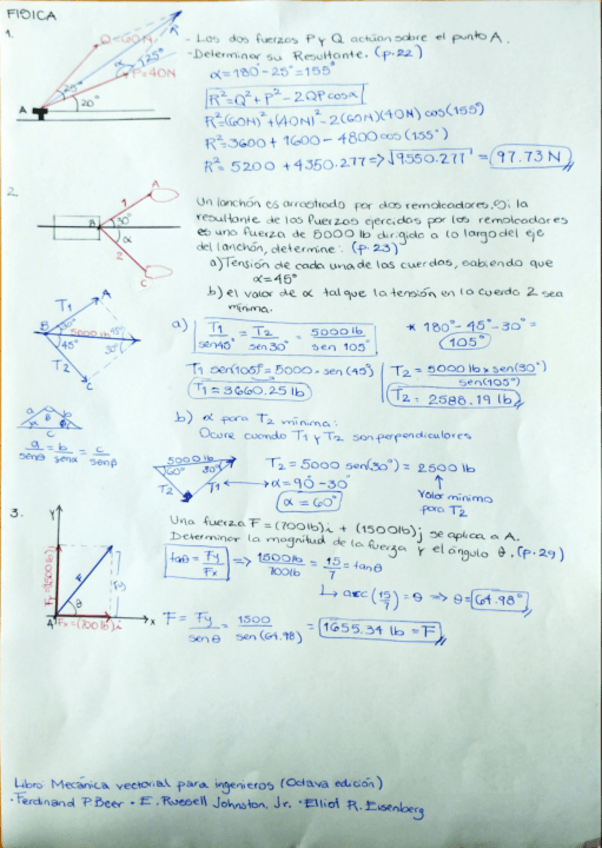 FISICA
1.
Q=60N
R
α
25°
P=40N
25°
20°
A
- Las dos fuerzas P y Q actúan sobre el punto A.
- Determinar su Resultante. (p.22)
α=180°-25°=155°
R²=Q²+P²-2QPcosα
R²=(60N)²+(40N)²-2(60N)(40N)cos(155°)
R²=3600+1600-4800cos(155°)
R²=5200+4350.277=>√9550.277=97.73N
2
1
A
B
30°
α
2
C
Un lanchón es arrastrado por dos remolcadores. Si la
resultante de las fuerzas ejercidas por los remolcadores
es una fuerza de 5000 lb dirigido a lo largo del eje
del lanchón, determine: (p.23)
a) Tensión de cada una de las cuerdas, sabiendo que
α=45°
b) el valor de α tal que la tensión en la cuerda 2 sea
mínima.
T1
A
B
30°
5000 lb
45°
45°
30°
T2
C
a) T1/sen45° = T2/sen30° = 5000 lb/sen 105°
* 180°-45°-30°=
105°
T1 sen(105°)=5000·sen(45°)
T1=3660.25 lb
T2=5000 lb x sen(30°)/sen(105°)
T2=2588.19 lb
a
b
c
a/senθ = b/senα = c/senβ
b) α para T2 mínima:
Ocurre cuando T1 y T2 son perpendiculares
5000 lb
60°
30°
T2
T1
T2=5000 sen(30°)=2500 lb
α=90-30°
α=60°
Valor mínimo
para T2
3.
Y
Fy=(1500lb)j
F
Fy
θ
A
x
Fx=(700lb)i
Una fuerza F=(700lb)i + (1500lb)j se aplica a A.
Determinar la magnitud de la fuerza y el ángulo θ. (p.29)
tanθ=Fy/Fx => 1500lb/700lb = 15/7 = tanθ
arc(15/7)=θ => θ=64.98°
F=Fy/senθ = 1500/sen(64.98) = 1655.34 lb = F
Libro: Mecánica vectorial para ingenieros (Octava edición)
·Ferdinand P. Beer · E. Russell Johnston, Jr. ·Elliot R. Eisenberg